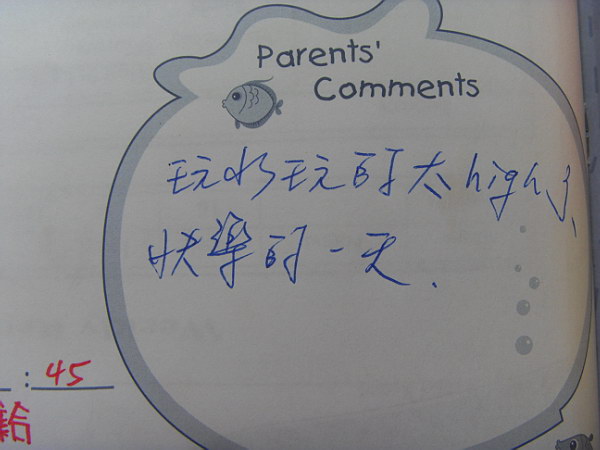 Parents'
Comments
玩水玩的太high了、
快樂的一天.
:45
給